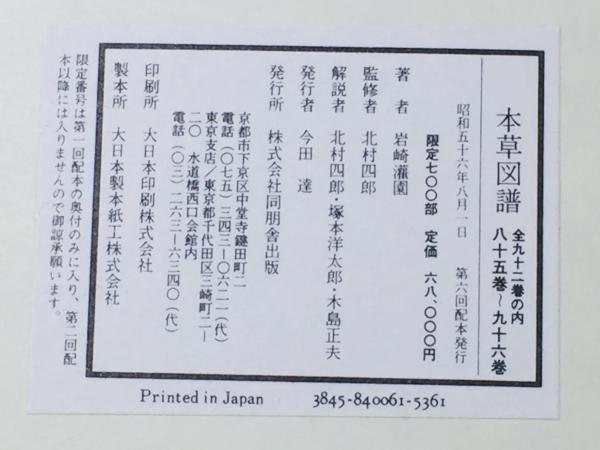 本草図譜 全九十二巻の内
八十五巻～九十六巻
昭和五十六年八月一日 第六回配本発行
限定七〇〇部 定価 六八、〇〇〇円
著者 岩崎灌園
監修者 北村四郎
解説者 北村四郎・塚本洋太郎・木島正夫
発行者 今田 達
発行所 株式会社同朋舎出版
京都市下京区中堂寺鍵田町二
電話(〇七五)三四三―〇六二一(代)
東京支店/東京都千代田区三崎町二―
二〇 水道橋西口会館内
電話(〇三)二六三―六三四〇(代)
印刷所 大日本印刷株式会社
製本所 大日本製本紙工株式会社
限定番号は第一回配本の奥付のみに入り、第二回配
本以降には入りませんので御諒承願います。
Printed in Japan 3845-840061-5361